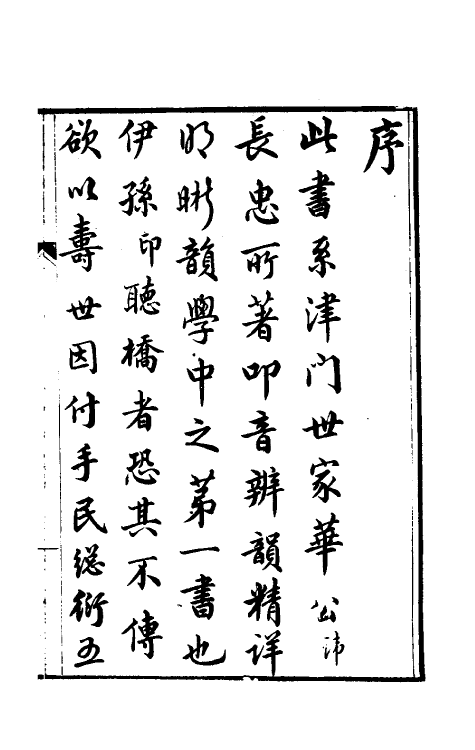 序
此書系津门世家華公諱
長忠所著叩音辨韻精详
明晰韻學中之第一書也
伊孫印聽橋者恐其不傳
欲以壽世因付手民總衍五